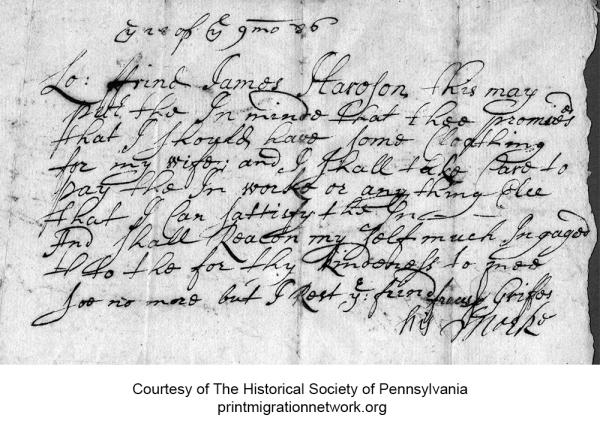 ye 28 of ye 9mo 86
Lo: ffrind James Haroson this may
putt the In minde that thee promiesd
that I should have some Cloathing
for my wife; and I shall take Care to
pay the In worke or any thing Elce
that I Can sattisfy the In
And shall Reacon my self much Ingaged
to the for thy kindeness to mee
soe no more but I Rest ye: frind francis Griffes
his Marke
Courtesy of The Historical Society of Pennsylvania
printmigrationnetwork.org